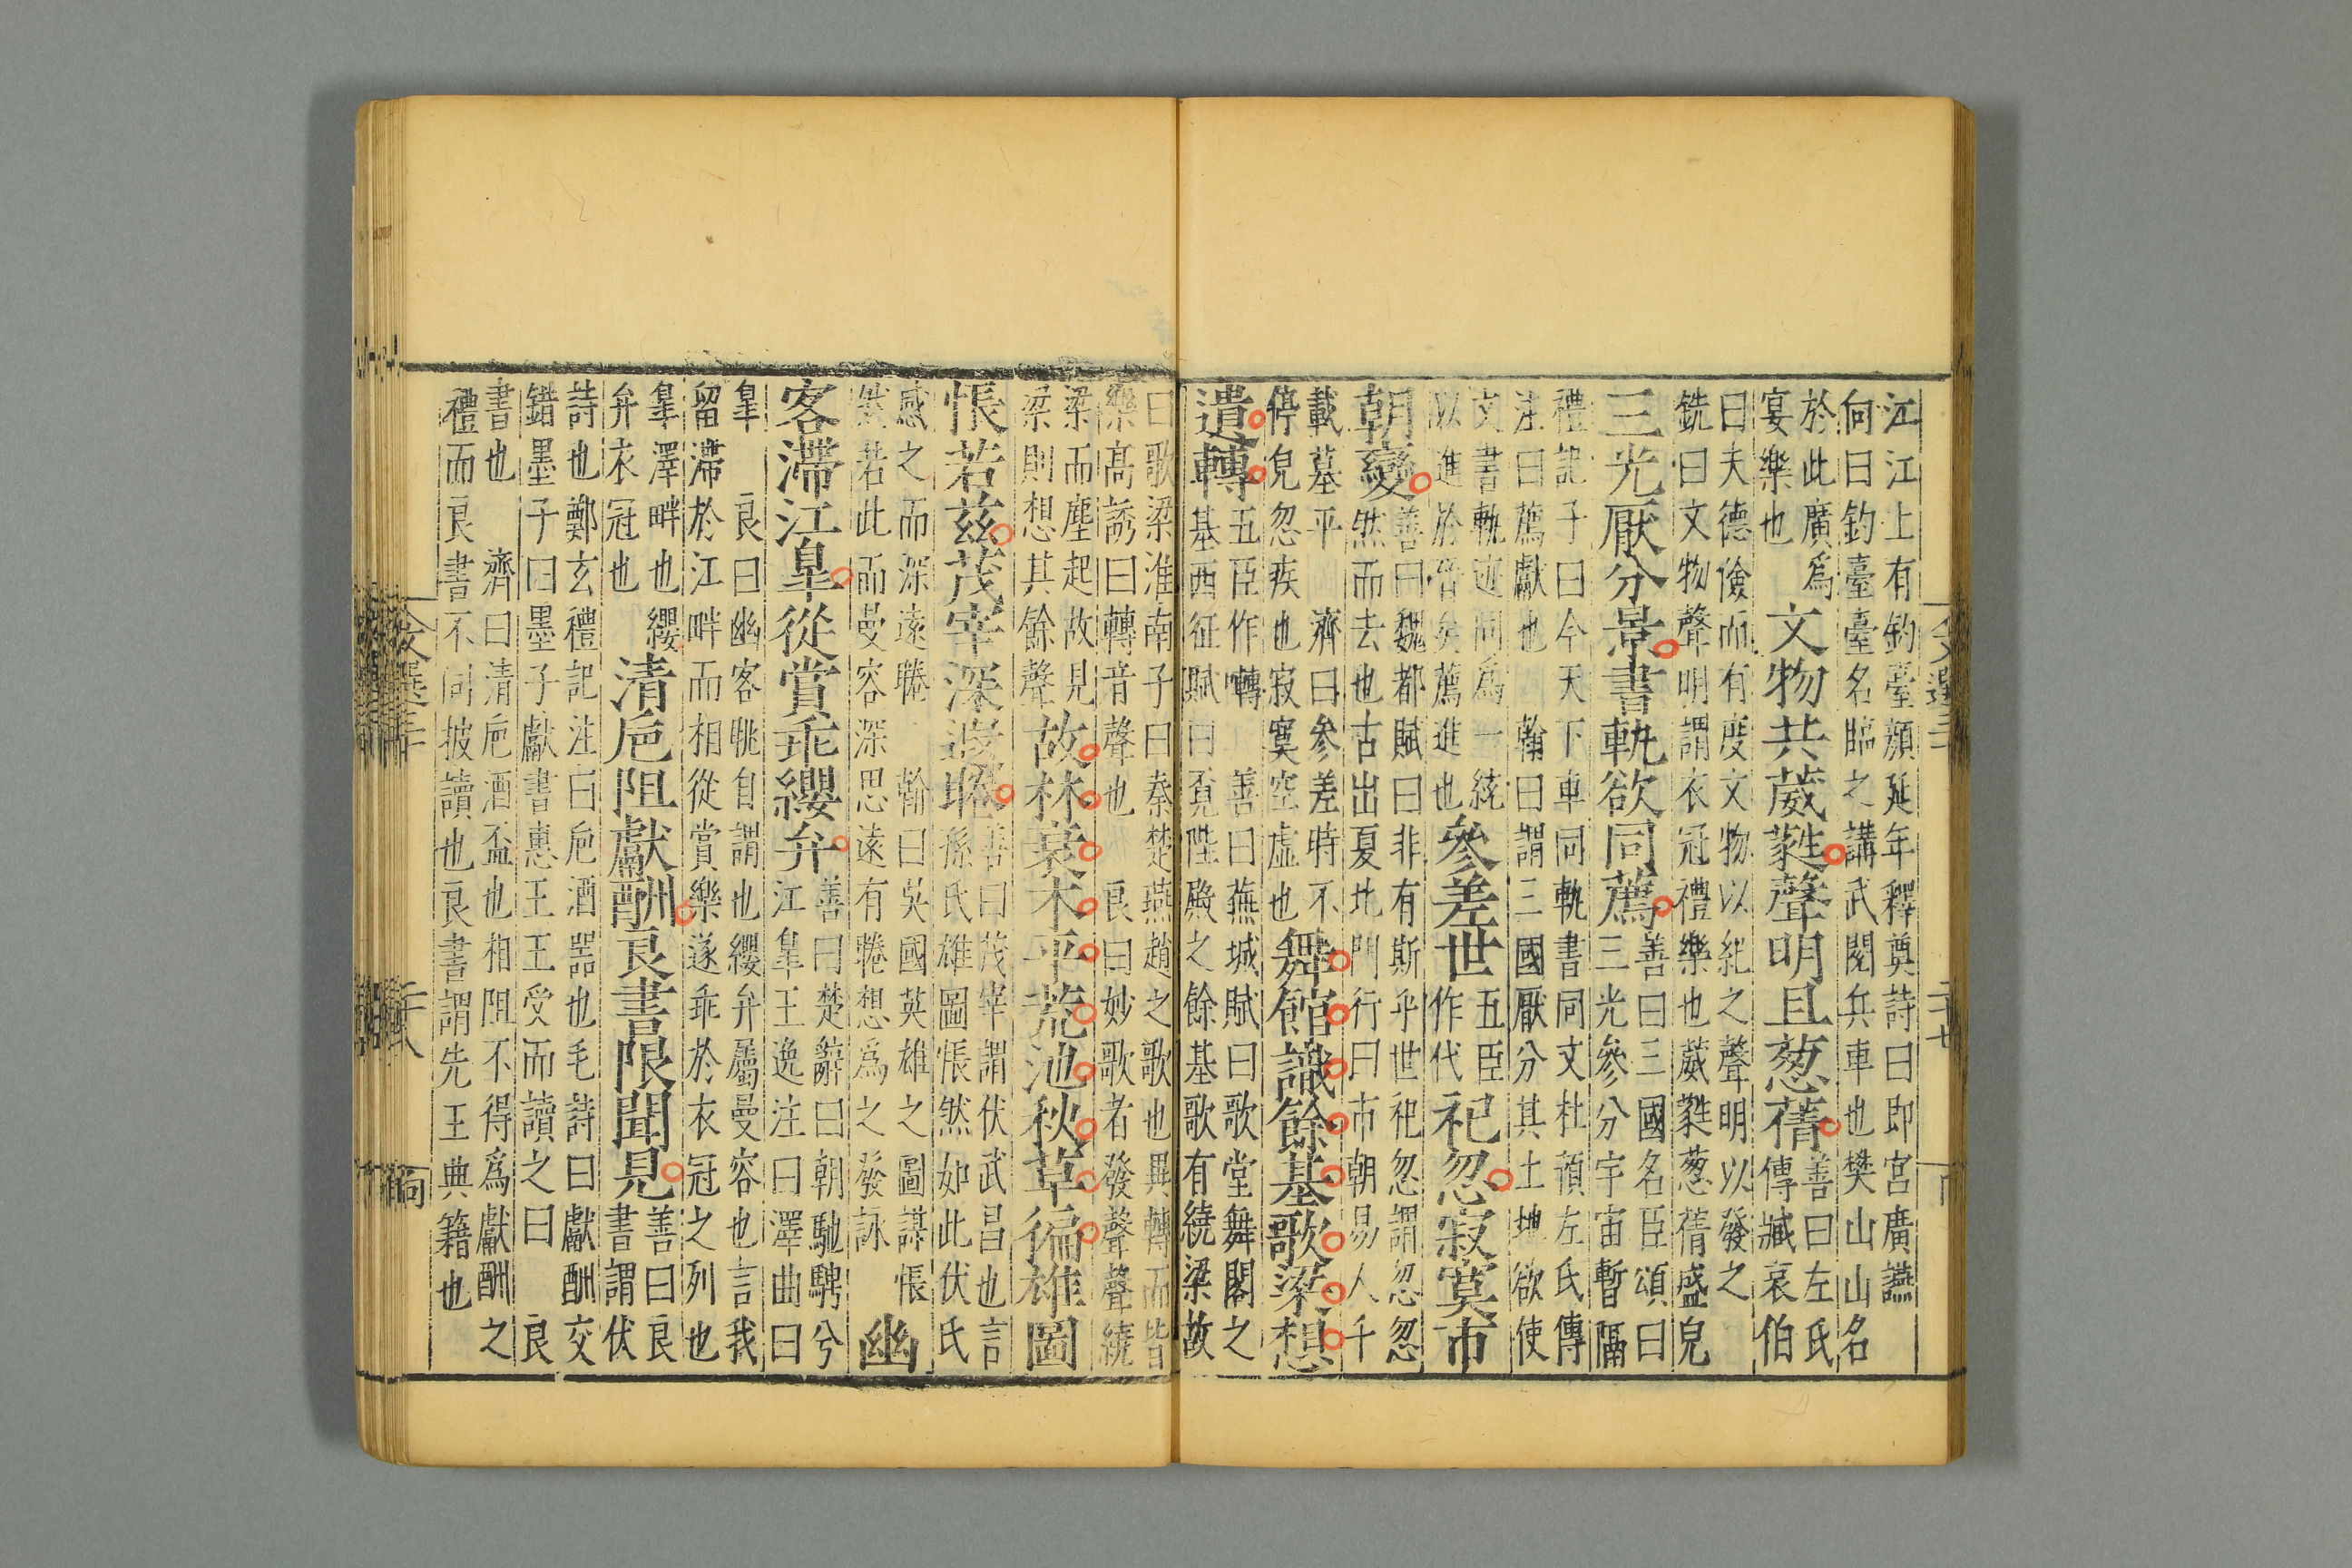 江江上有釣臺顏延年釋奠詩曰即宮廣讌
向曰釣臺臺名臨之講武閱兵車也樊山山名
於此廣爲
宴樂也
文物共葳蕤聲明且葱蒨
善曰左氏
傳臧哀伯
曰夫德儉而有度文物以紀之聲明以發之
銑曰文物聲明謂衣冠禮樂也葳蕤葱蒨盛皃
三光厭分景書軌欲同薦
善曰三國名臣頌曰
三光參分宇宙暫隔
禮記子曰今天下車同軌書同文杜預左氏傳
注曰薦獻也 翰曰謂三國厭分其土地欲使
文書軌迹同爲一統
以進於晉矣薦進也
參差世
五臣
作代
祀忽寂寞市
朝變
善曰魏都賦曰非有斯乎世祀忽謂忽忽
然而去也古出夏北門行曰市朝易人千
載墓平 濟曰參差時不
停皃忽疾也寂寞空虛也
舞館識餘基歌梁想
遺轉
五臣作囀 善曰蕪城賦曰歌堂舞閣之
基西征賦曰覔陛殿之餘基歌有繞梁故
曰歌梁淮南子曰秦楚燕趙之歌也異轉而皆
樂高誘曰轉音聲也 良曰妙歌者發聲聲繞
梁而塵起故見
梁則想其餘聲
故林衰木平荒池秋草徧雄圖
悵若茲茂宰深遐睠
善曰茂宰謂伏武昌也言
孫氏雄圖悵然如此伏氏
感之而深遠睠 翰曰吳國英雄之圖謀悵
然若此而曼容深思遠有睠想爲之發詠
幽
客滯江臯從賞乖纓弁
善曰楚辭曰朝馳騁兮
江臯王逸注曰澤曲曰
臯 良曰幽客眺自謂也纓弁屬曼容也言我
留滯於江畔而相從賞樂遂乖於衣冠之列也
臯澤畔也纓
弁衣冠也
清巵阻獻酬良書限聞見
善曰良
書謂伏
詩也鄭玄禮記注曰巵酒器也毛詩曰獻酬交
錯墨子曰墨子獻書惠王王受而讀之曰 良
書也 濟曰清巵酒盃也相阻不得爲獻酬之
禮而良書不同披讀也良書謂先王典籍也